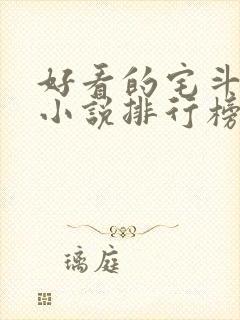 好看的宅斗
小说排行榜
璃庭